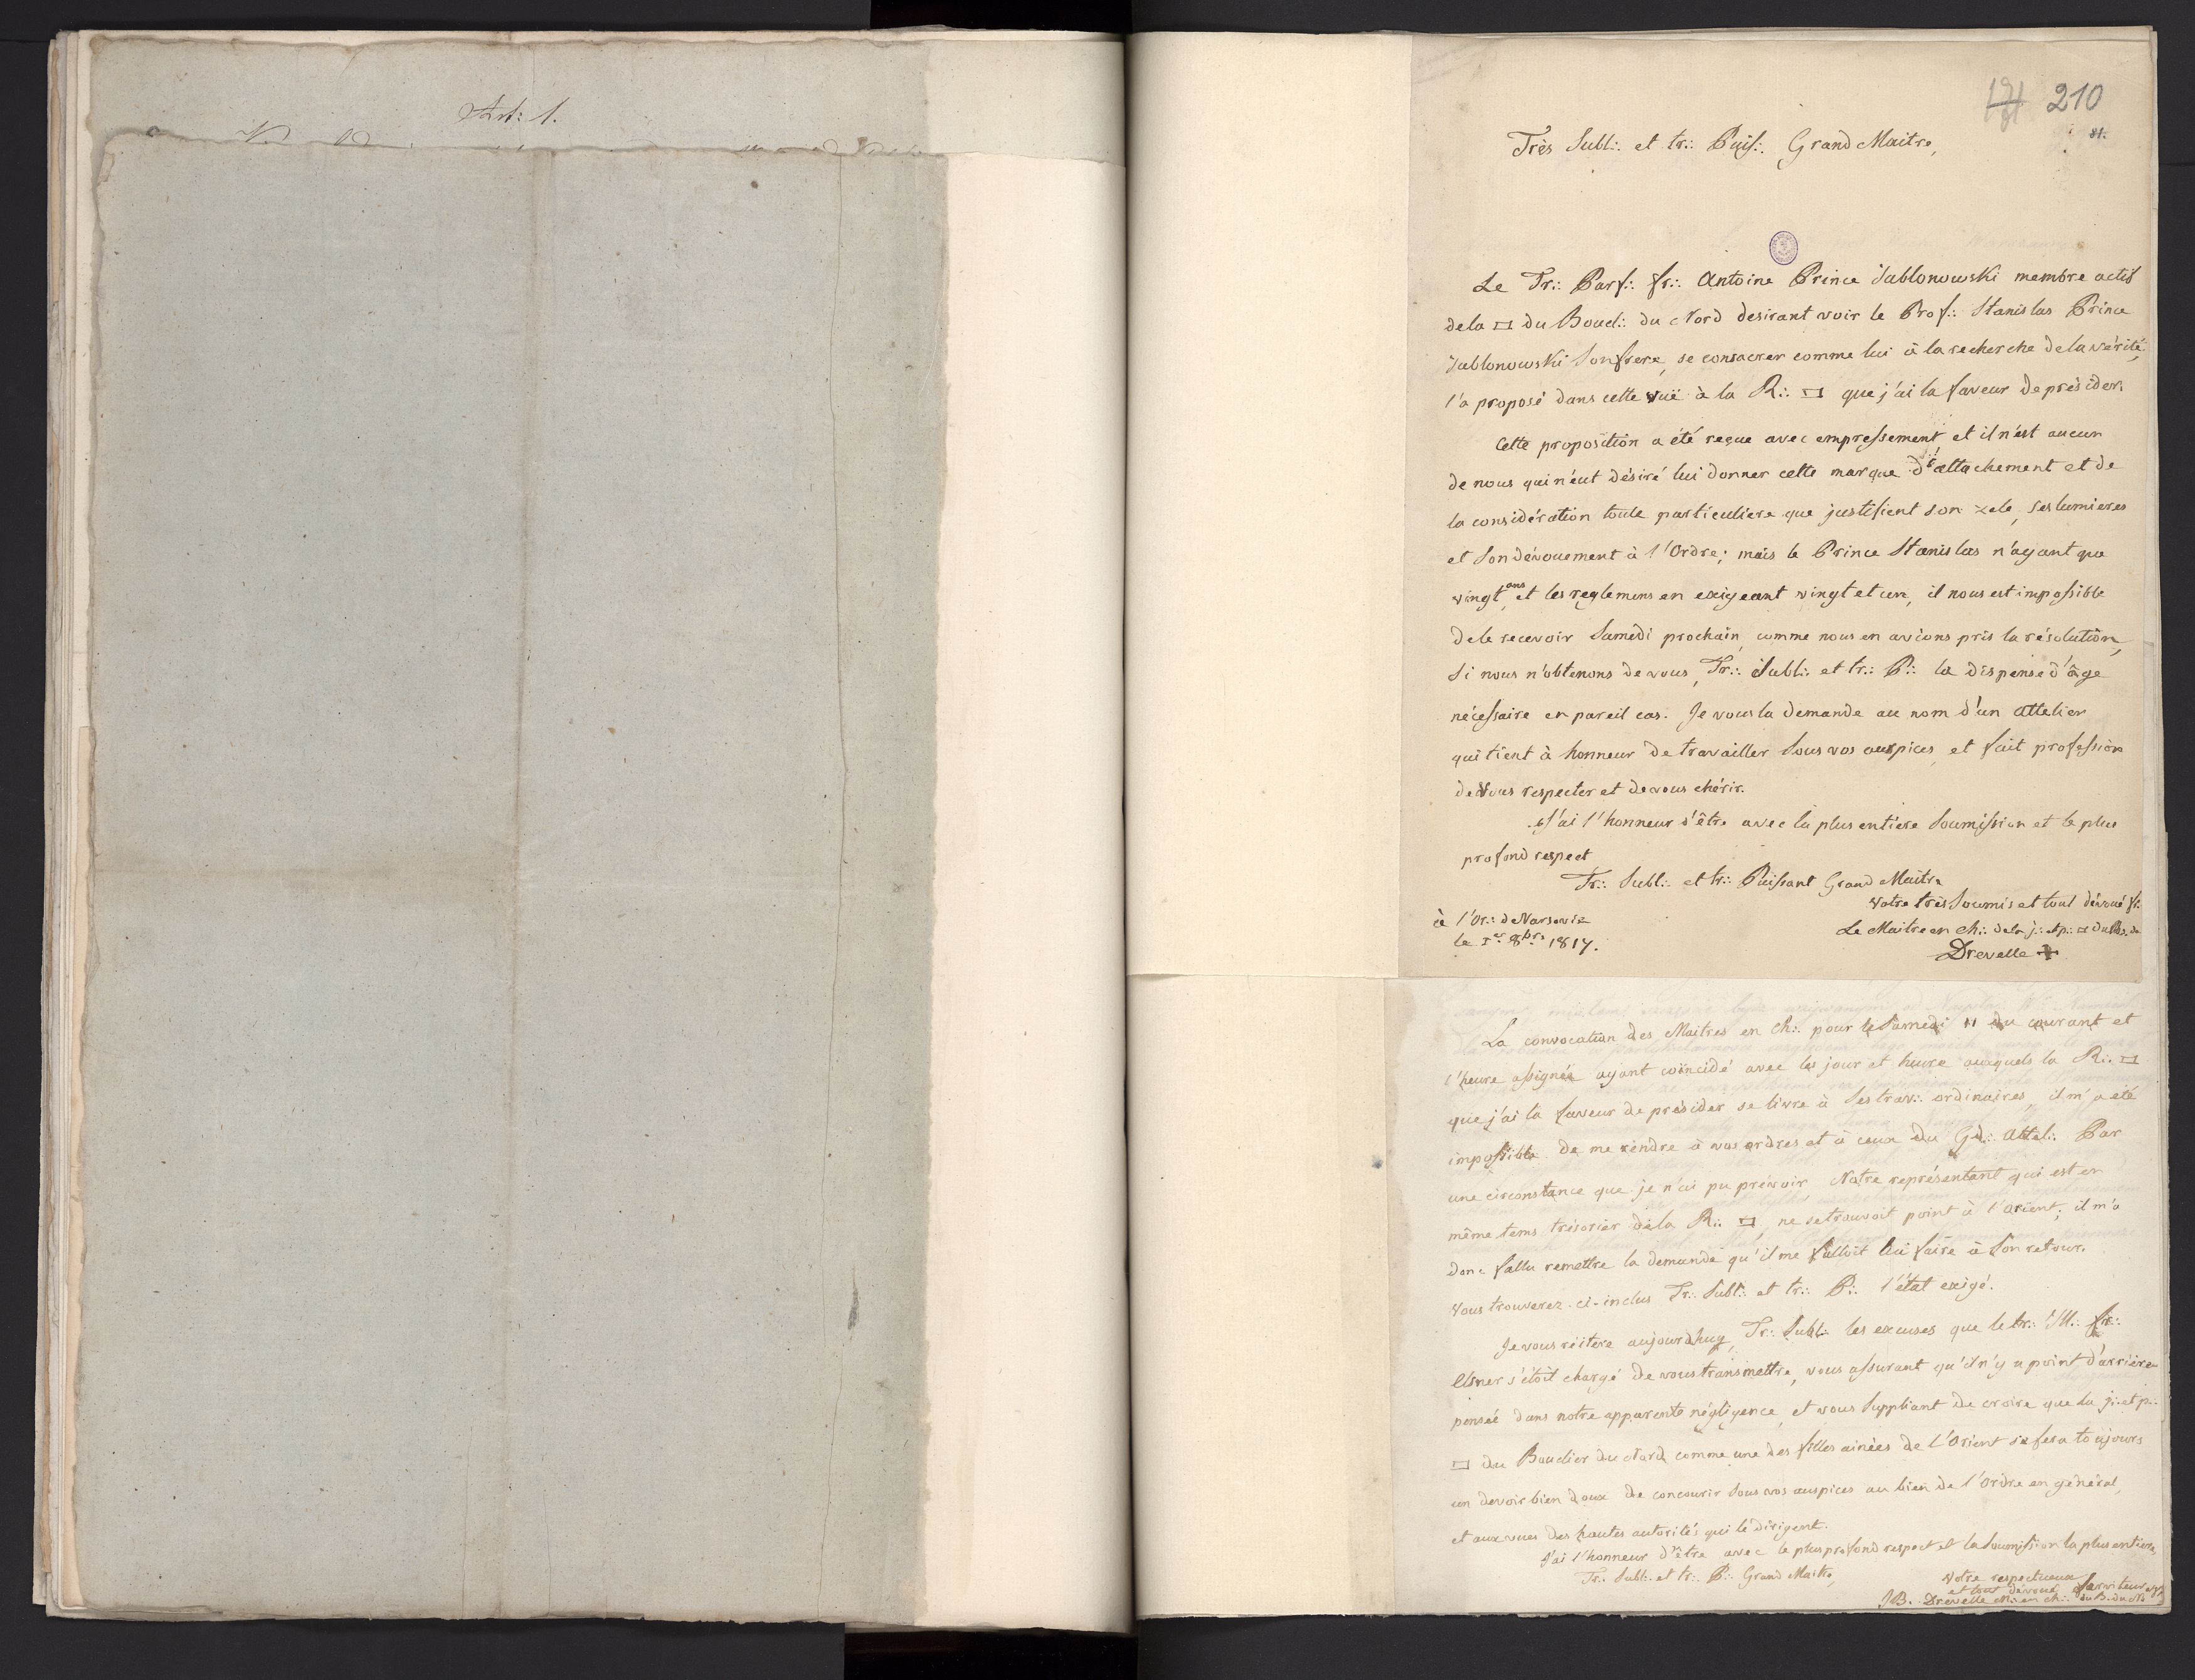 Art: 1.
210
81.
Très Subl∴ et tr∴ Puis∴ Grand Maitre,
Le Tr∴ Parf∴ fr∴ Antoine Prince Jablonowski membre actif
de la ▭ du Boucl∴ du Nord desirant voir le Prof∴ Stanislas Prince
Jablonowski Son frere, se consacrer comme lui à la recherche de la vérité,
l'a proposé dans cette vuë à la R∴ ▭ que j'ai la faveur de présider.
Cette proposition a été reçue avec empressement et il n'est aucun
de nous qui n'eut désiré lui donner cette marque d'attachement et de
la considération toute particuliere que justifient son zele, ses lumieres
et Son dévouement à l'Ordre; mais le Prince Stanislas n'ayant que
vingt ans et les reglemens en exigeant vingt et un, il nous est impossible
de le recevoir Samedi prochain, comme nous en avions pris la résolution,
Si nous n'obtenons de vous, Tr∴ Subl∴ et tr∴ P∴ la dispense d'âge
nécessaire en pareil cas. Je vous la demande au nom d'un attelier
qui tient à honneur de travailler Sous vos auspices, et fait profession
de Vous respecter et de vous chérir.
J'ai l'honneur d'être avec la plus entiere Soumission et le plus
profond respect
Tr∴ Subl∴ et tr∴ Puissant Grand Maitre
votre très Soumis et tout dévoué fr.
à l'Or∴ de Varsovie
Le Maitre en Ch∴ de la j∴ et p∴ ▭ du B. du
le 1er 8bre 1817.
Drevelle
La convocation des Maitres en Ch∴ pour le Samedi 11 du courant et
l'heure assignée ayant coïncidé avec les jour et heure auxquels la R∴ ▭
que j'ai la faveur de présider se livre à Ses trav∴ ordinaires, il m'a été
impossible de me rendre à vos ordres et à ceux du Gd∴ Attel∴ Par
une circonstance que je n'ai pu prévoir Notre représentant qui est en
même tems trésorier de la R∴ ▭, ne se trouvoit point à l'orient; il m'a
donc fallu remettre la demande qu'il me falloit lui faire à Son retour.
Vous trouverez ci-inclus Tr∴ Subl∴ et tr∴ P∴ l'état exigé.
Je vous réitere aujourdhuy, Tr∴ Subl∴ les excuses que le tr∴ Ill∴ fr∴
Elsner s'étoit chargé de vous transmettre, vous assurant qu'il n'y a point d'arriere
pensée dans notre apparente négligence, et vous Suppliant de croire que la j∴ et p∴
▭ du Bouclier du Nord comme une des filles ainées de l'Orient se fera toujours
un devoir bien doux de concourir Sous vos auspices au bien de l'Ordre en général,
et aux vues des hautes autorités qui le dirigent.
J'ai l'honneur d'être avec le plus profond respect et la Soumission la plus entiere,
Tr∴ Subl∴ et tr∴ P∴ Grand Maitre,
Votre respectueux
et tout dévoué Serviteur
JB. Drevelle M∴ en ch∴ du B. du N.